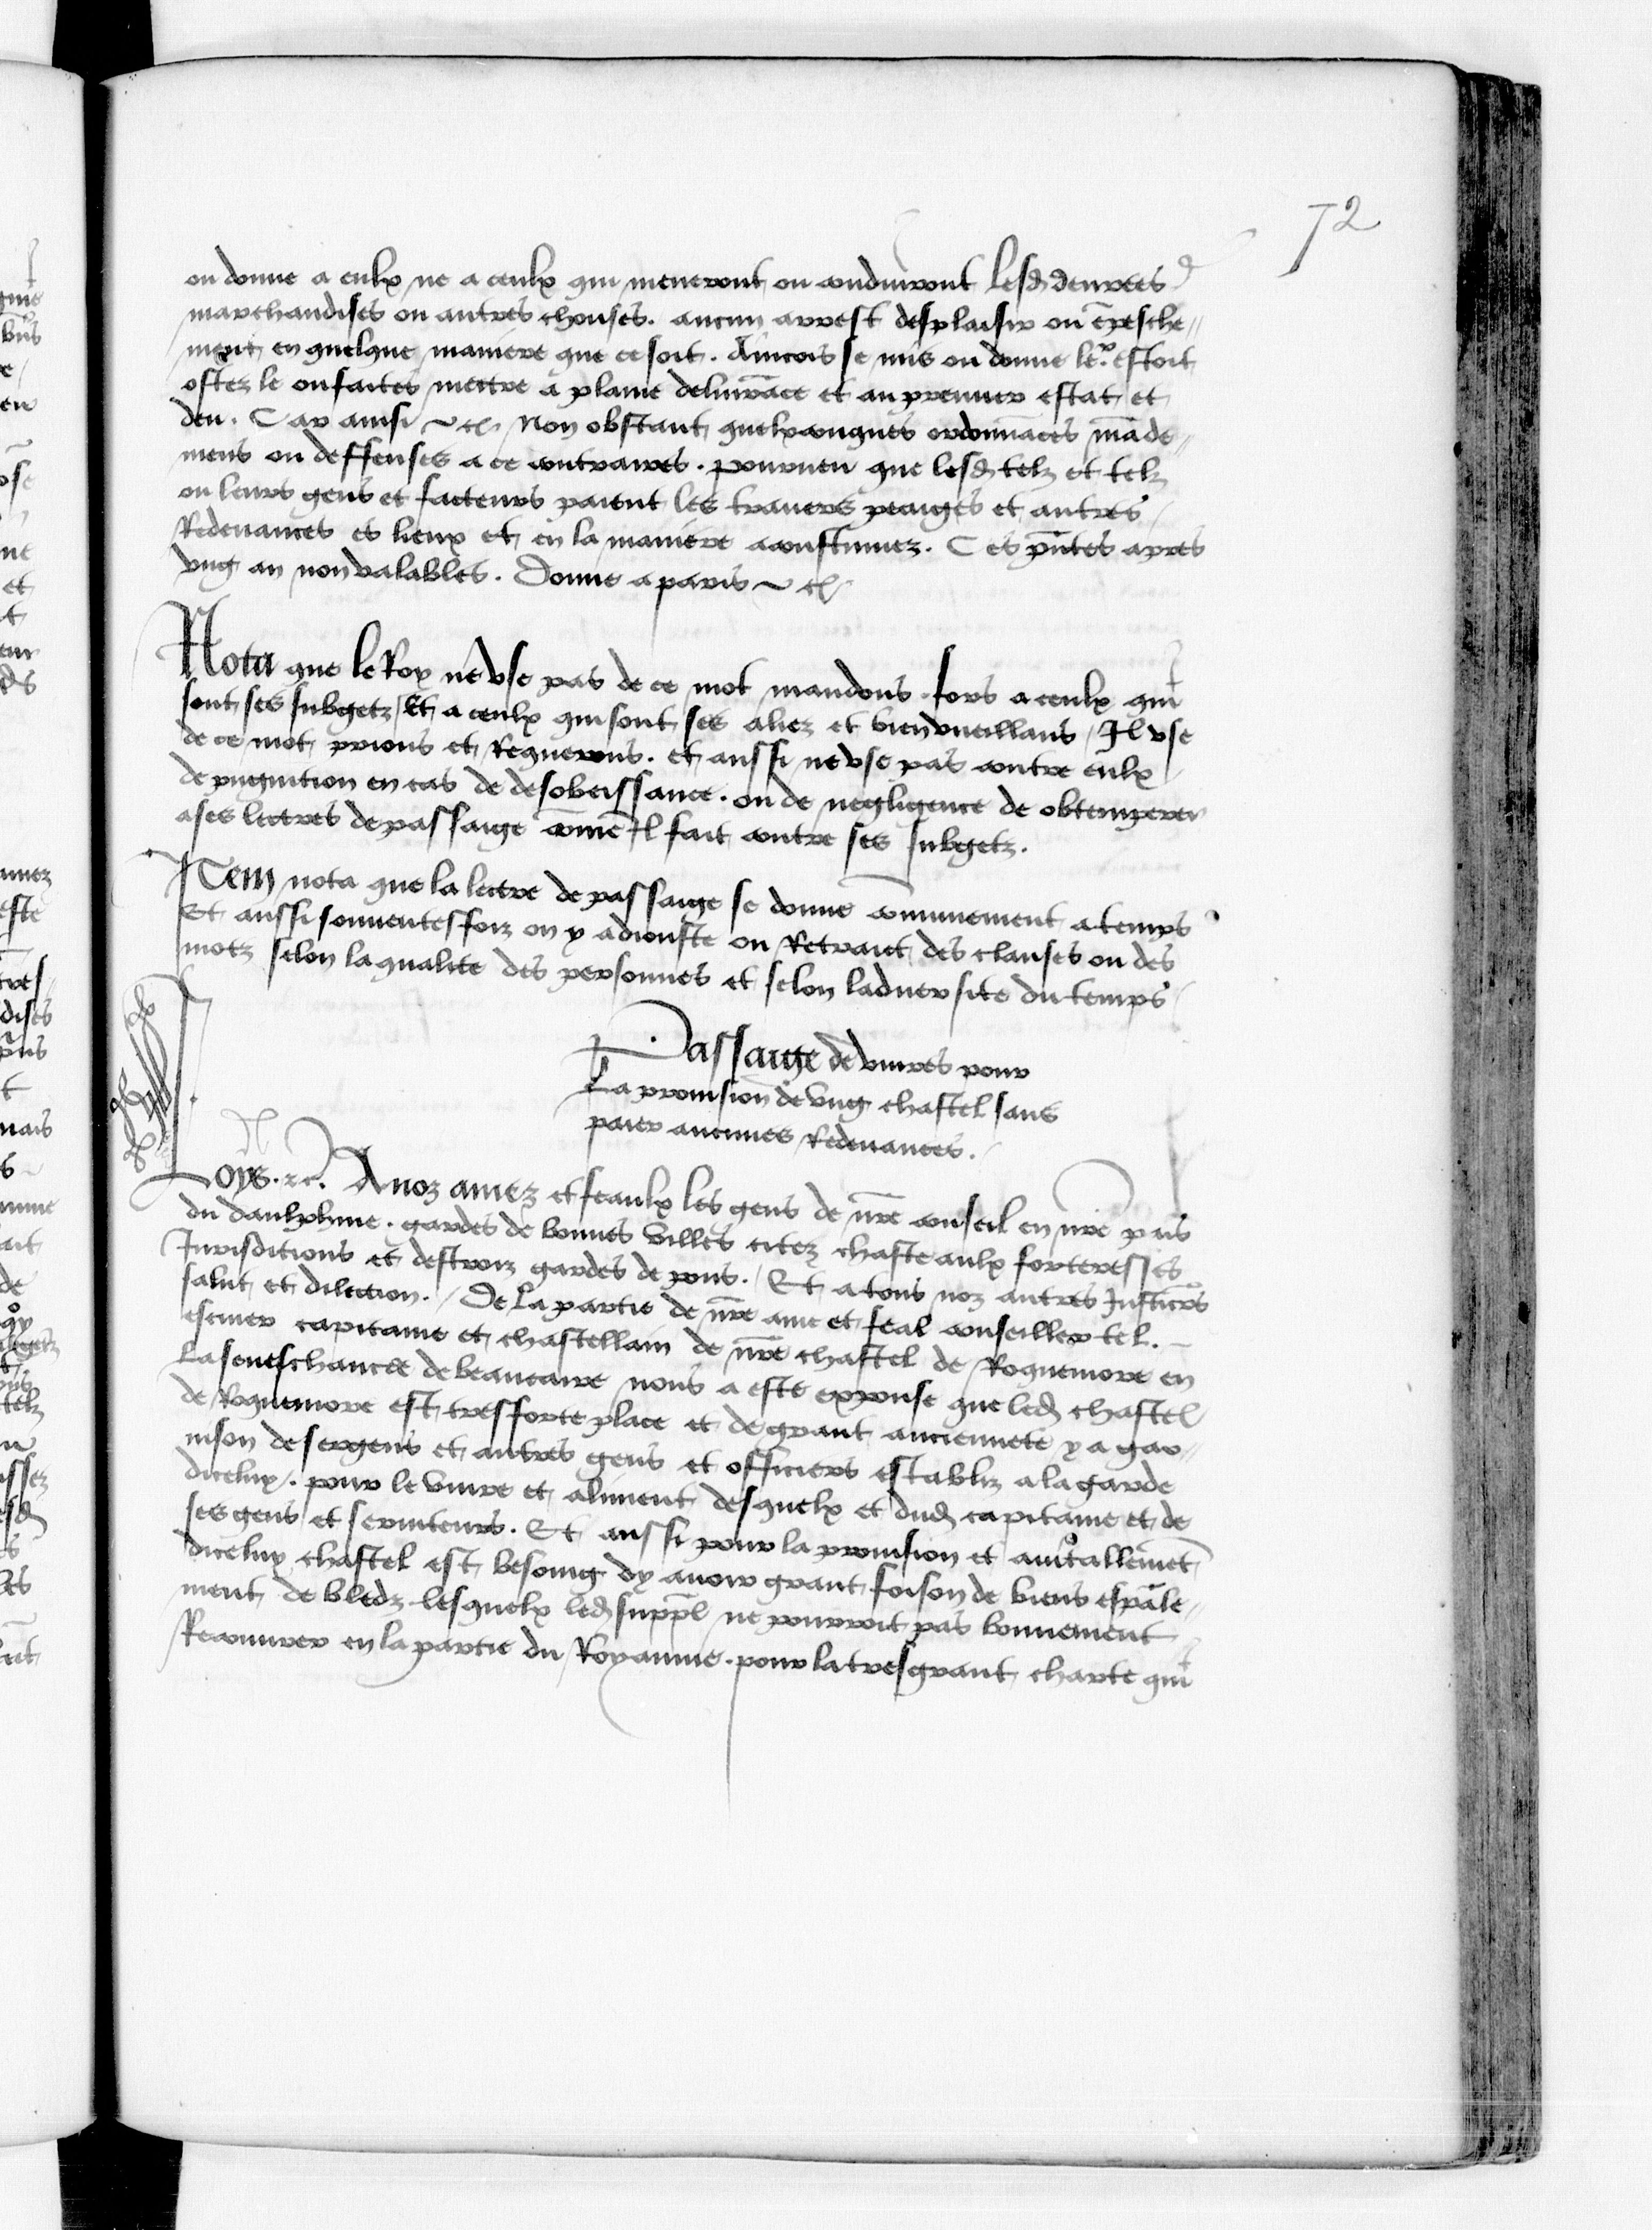 72
ou donne a eulx ne a ceulx qui meneront ou conduiront lesd denrees
marchandises ou autres chouses. aucun arrest desplaisir ou e͞pesche//
ment en quelque maniere que ce soit. Aincois se mis ou donne le.r estoit
ostez le ou faites mettre a plaine deliur͞ace et au premier estat et
deu. Car ainsi ~ &c. Non obstant quelxconques ordonn͞aces m͞ade//
mens ou deffenses a ce contraires. pourueu que lesd telz et telz
ou leurs gens et facteurs paient les trauers peaiges et autres
Redeuances es lieux et en la maniere acoustumez. Ces p͞ntes apres
vng an non valables. Donne a paris ~ &c
Nota que le Roy ne vse pas de ce mot mandons. fors a ceulx qui
sont ses subgetz / Et a ceulx qui sont ses aliez et bienvueillans / Il vse
de ce mot prions et Requerons. et aussi ne vse pas contre eulx
de pugnition en cas de desobeissance. ou de negligence de obtemperer
a ses lectres de passaige co͞me Il fait contre ses subgetz.
Item nota que la lectre de passaige se donne co͞munement a temps
Et aussi souuentesfoiz on y adiouste ou Retraict des clauses ou des
motz selon la qualite des personnes et selon laduersite du temps
Passaige de viures pour
La prouision de vng chastel sans
paier aucunes Redeuances.
Loys. &c. A noz amez et feaulx les gens de n͞re conseil en n͞re pais
du daulphine. gardes de bonnes villes citez chasteaulx forteresses
Jurisditions et destroiz gardes de pons. / Et a tous noz autres Justiciers
salut et dilection. / De la partie de n͞re ame et feal conseillier tel.
escuier capitaine et chastellain de n͞re chastel de Roquemore en
La seneschaucee de beaucaire nous a este expouse que led chastel
de Roquemore est tresforte place et de grant anciennete y a gar//
nison de sergens et autres gens et officiers establiz a la garde
dicelux. pour le viure et aliment desquelx et dud capitaine et de
ses gens et seruiteurs. Et aussi pour la prouision et auitallem͞et
diceluy chastel est besoing dy auoir grant foison de biens esp͞ale//
ment de bledz lesquelx led supp͞l ne pourroit pas bonnement
Recouurer en la partie du Royaume. pour la tresgrant charte qui